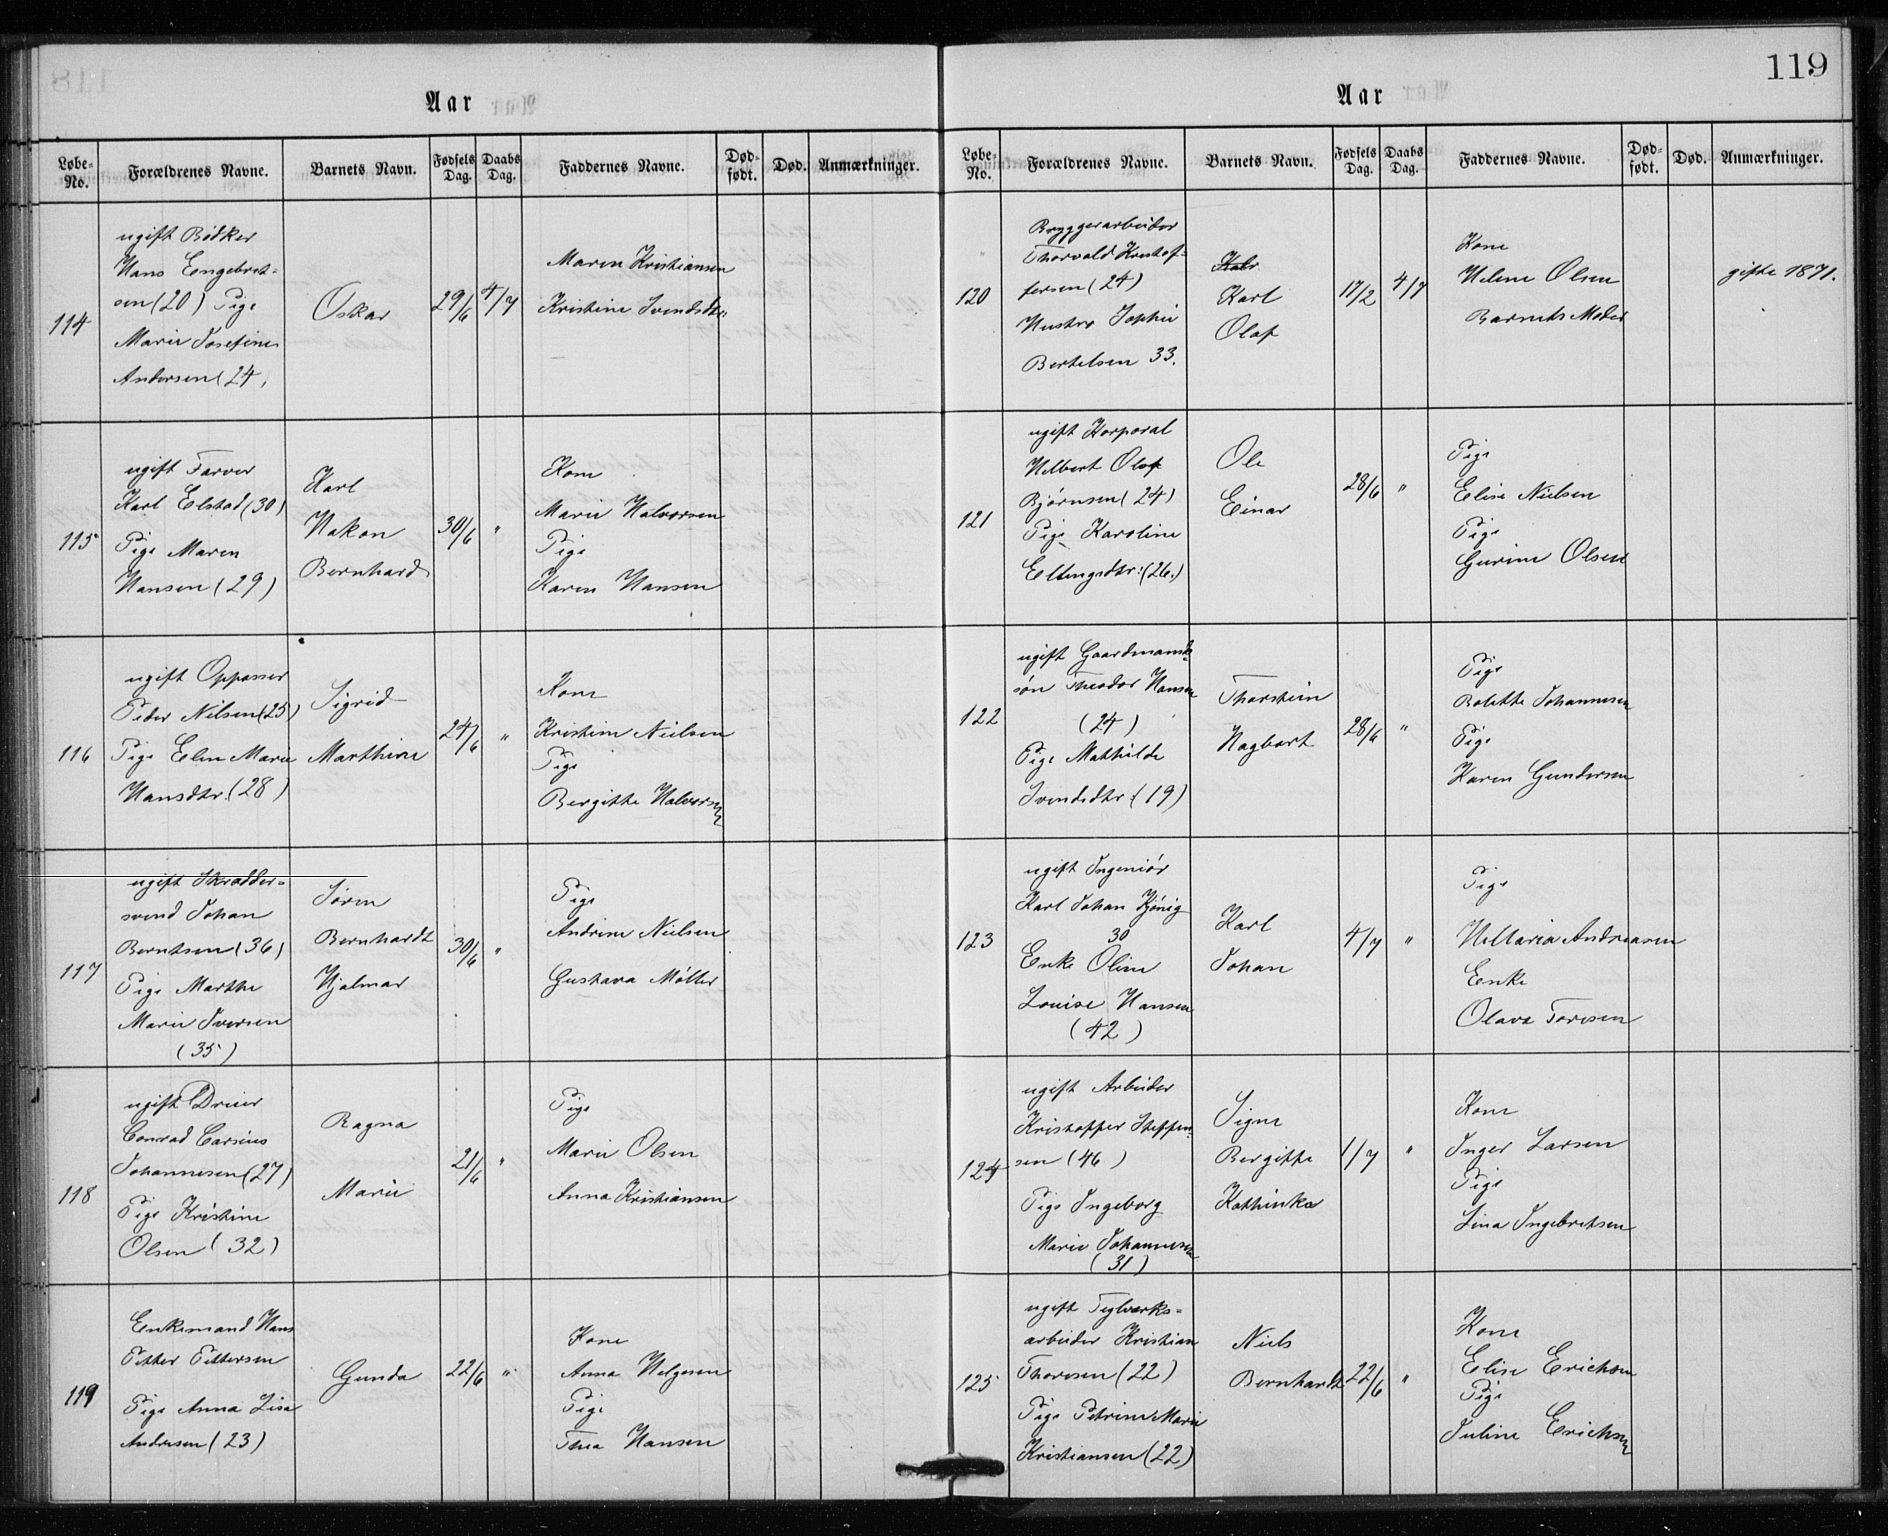 Aar
Løbe-No.
Forældrenes Navne.
Barnets Navn.
Fødsels Dag.
Daabs Dag.
Faddernes Navne.
Død-født.
Død.
Anmærkninger.
114
ugift Bødker
Hans Engebret-
sen (20) Pige
Marie Josefine
Andersen (24)
Oskar
29/6
4/7
Maren Kristiansen
Kristine Svendsdtr:
115
ugift Farver
Karl Elstad (30)
Pige Maren
Hansen (29)
Karl
Hakon
Bernhard
30/6
"
Kone
Marie Halvorsen
Pige
Karen Hansen
116
ugift Oppasser
Peder Nilsen (25)
Pige Elen Marie
Hansdtr. (28)
Sigrid
Marthine
24/6
"
Kone
Kristine Nielsen
Pige
Bergitte Halvorsen
117
ugift Skrædder-
svend Johan
Berntsen (36)
Pige Marthe
Marie Iversen
(35)
Søren
Bernhardt
Hjalmar
30/6
"
Pige
Andrine Nielsen
Gustava Møller
118
ugift Dreier
Conrad Carsius
Johannesen (27)
Pige Kristine
Olsen (32)
Ragna
Marie
21/6
"
Pige
Marie Olsen
Anna Kristiansen
119
Enkemand Hans
Petter Pettersen
Pige Anna Lise
Andersen (23)
Gunda
22/6
"
Kone
Anna Helgesen
Pige
Thea Hansen
119
Aar
Løbe-No.
Forældrenes Navne.
Barnets Navn.
Fødsels Dag.
Daabs Dag.
Faddernes Navne.
Død-født.
Død.
Anmærkninger.
120
Bryggerarbeider
Thorvald Kristof-
fersen (24)
Hustro Sophie
Bertelsen 33.
Karl
Olaf
17/2
4/7
Kone
Helene Olsen
Barnets Moder
gifte 1871.
121
ugift Korporal
Helbert Olaf
Bjørnsen (24)
Pige Karoline
Ellingsdtr: (26.)
Ole
Einar
28/6
"
Pige
Elise Nielsen
Pige
Gurine Olsen
122
ugift Gaardmands-
søn Theodor Hansen
(24)
Pige Mathilde
Svendsdtr: (19)
Thorstein
Hagbart
28/6
"
Pige
Bolette Johannesen
Pige
Karen Gundersen
123
ugift Ingeniør
Karl Johan Kjønig
30
Enke Oline
Louise Hansen
(42)
Karl
Johan
4/7
"
Pige
Hellaria Andreasen
Enke
Olava Toresen
124
ugift Arbeider
Kristoffer Steffen-
sen (46)
Pige Ingeborg
Marie Johannesen
(31)
Signe
Bergitte
Kathinka
1/7
"
Kone
Inger Larsen
Pige
Lina Ingebretsen
125
ugift Teglværks-
arbeider Kristian
Thoresen (22)
Pige Petrine Marie
Kristiansen (22)
Niels
Bernhardt
22/6
"
Kone
Elise Erichsen
Pige
Juline Erichsen